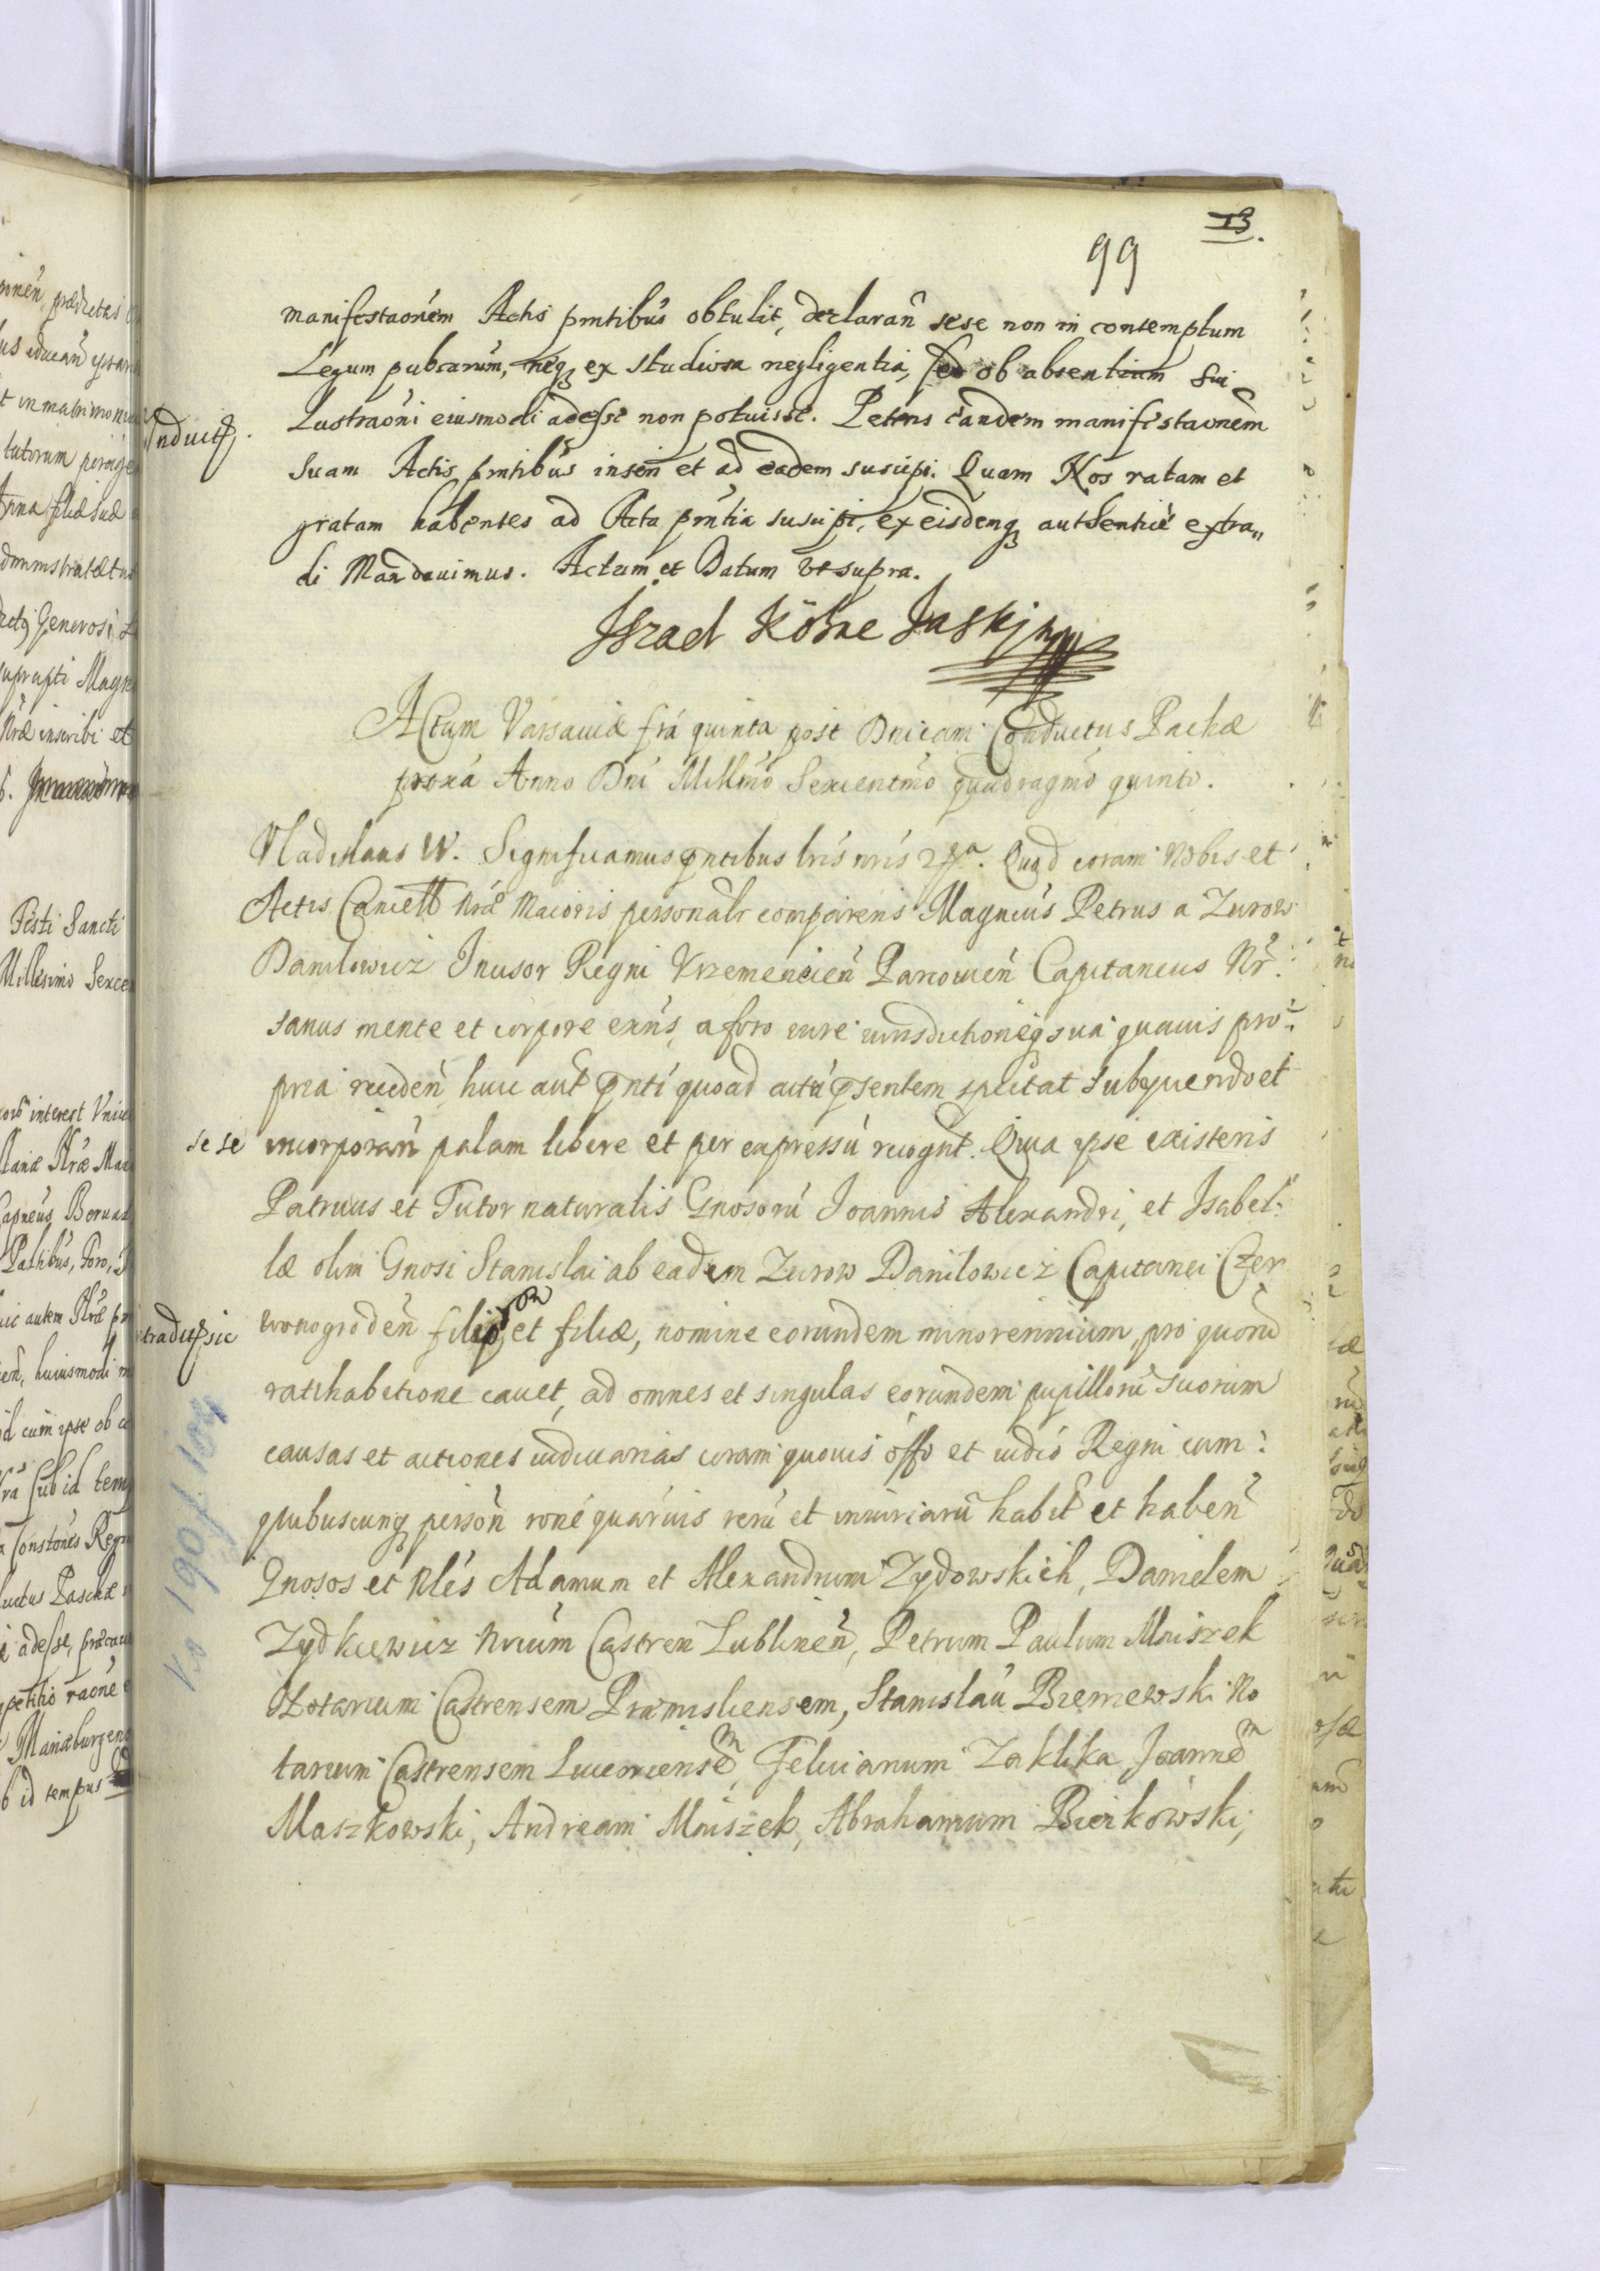 13.
99
manifestaonem Actis pntibus obtulit, declaran sese non in contemptum
Legum pubcarum, neq ex studiosa negligentia, sed ob absentiam sui
Lustraoni eiusmodi adesse non potuisse. Petens eandem manifestaonem
suam Actis pntibus inseri et ad eadem suscipi. Quam Nos ratam et
gratam habentes ad Acta pntia suscipi, ex eisdemq authentice extra„
di Mandavimus. Actum et Datum ut supra.
Iszael Köhne Jaski
Actum Varsaviæ fra quinta post Dnicam Conductus Pachæ
proxa Anno Dni Millmo Sexcentmo quadragmo quinto.
Vladislaus IV. Significamus pntibus lris nris Quod coram Nobis et
Actis Cancell Nræ Maioris personalr comparens Magncus Petrus a Zurow
Danilowicz Incisor Regni Krzemencien Parcovien Capitaneus Nr.
sanus mente et corpore exns, a foro iure iurisdictioneq sua quavis pro
pria receden huic aut pnti quoad actu psentem spectat subyciendo et
sese incorporan palam libere et per expressu recognt. Quia ipse existens
Patruus et Tutor naturalis Gnosoru Joannis Alexandri, et Isabel
læ olim Gnosi Stanislai ab eadem Zurow Danilowicz Capitanei Czer
wonogroden filior et filiæ, nomine eorundem minorennium, pro quoru
ratihabitione cavet, ad omnes et singulas eorundem pupilloru suorum
causas et actiones iudiciarias coram quovis offo et iudio Regni cum
quibuscunq person rone quarvis reru et iniuriaru habit et haben
Gnosos et Nles Adamum et Alexandrum Zydowskich, Danielem
Zydkiewicz Nrium Castren Lublinen, Petrum Paulum Mniszek
Notarium Castrensem Præmisliensem, Stanislau Bieniewski No
tarium Castrensem Luceoriensem, Felicianum Zaklika Joannem
Maszkowski, Andream Mniszek, Abrahamum Bierkowski,